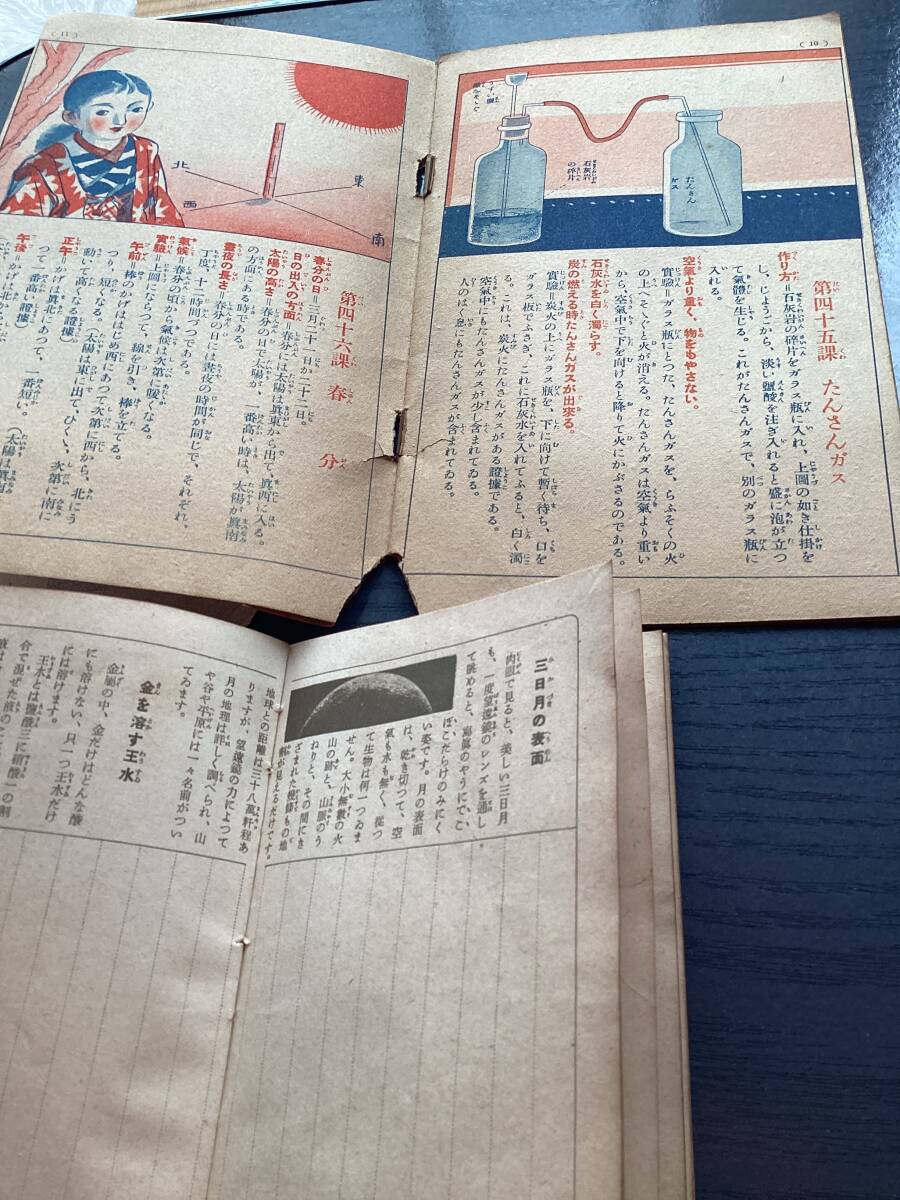 ( 10 )
うすい鹽
酸をそゝぐ
石灰岩
の碎片
たんさん
ガス
第四十五課 たんさんガス
作り方=石灰岩の碎片をガラス瓶に入れ、上圖の如き仕掛を
し、じょうごから、淡い鹽酸を注ぎ入れると盛に泡が立つ
て氣體を生じる。これがたんさんガスで、別のガラス瓶に
入れる。
空氣より重く、物をもやさない。
實驗=ガラス瓶にとつた、たんさんガスを、らふそくの火
の上にそゝぐと火が消える。たんさんガスは空氣より重い
から、空氣中で下を向けると降りて火にかぶさるのである。
石灰水を白く濁らす。
炭の燃える時たんさんガスが出來る。
實驗=炭火の上にガラス瓶を、下に向けて暫く待ち、口を
ガラス板でふさぎ、これに石灰水を入れてふると、白く濁
る。これは、炭火にたんさんガスがある證據である。
空氣中にもたんさんガスが少し含まれてゐる。
人のはく息にもたんさんガスが含まれてゐる。
( 11 )
北
東
西
南
第四十六課 春分
春分の日=三月二十一日か二十二日。
日の出入の方面=春分には太陽は眞東から出て眞西に入る。
太陽の高さ=春分の日で太陽が、一番高い時は、太陽が眞南
の方面にある時である。
晝夜の長さ=春分の日には晝夜の時間が同じで、それぞれ
丁度、十二時間づつである。
氣候=春分の頃から氣候は次第に暖くなる。
實驗=上圖にならつて、線を引き、棒を立てる。
午前=棒のかげははじめ西にあつて次第に西から、北にう
つり、短くなる。(太陽は東に出て、ひくい、次第に南に
動いて高くなる證據)
正午=かげは眞北にあつて、一番短い。(太陽は眞南に
つて一番高い證據)
午後=かげは北か
三日月の表面
肉眼で見ると、美しい三日月
も、一度望遠鏡のレンズを通し
て眺めると、寫眞のやうにでこ
ぼこだらけのみにく
い姿です。月の表面
は、乾き切つて、空
氣も水も無く、從つ
て生物は何一つゐま
せん。大小無數の火
山の跡と、山脈のう
ねりと、その間にき
ざまれた幾條もの地
割が見えるだけです。
地球との距離は三十八萬粁程あ
りますが、望遠鏡の力によつて
月の地理は詳しく調べられ、山
や谷や平原には一々名前がつい
てゐます。
金を溶す王水
金屬の中、金だけはどんな酸
にも溶けない、只一つ王水だけ
には溶けます。
王水とは鹽酸三に硝酸一の割
合で混ぜた液のこ